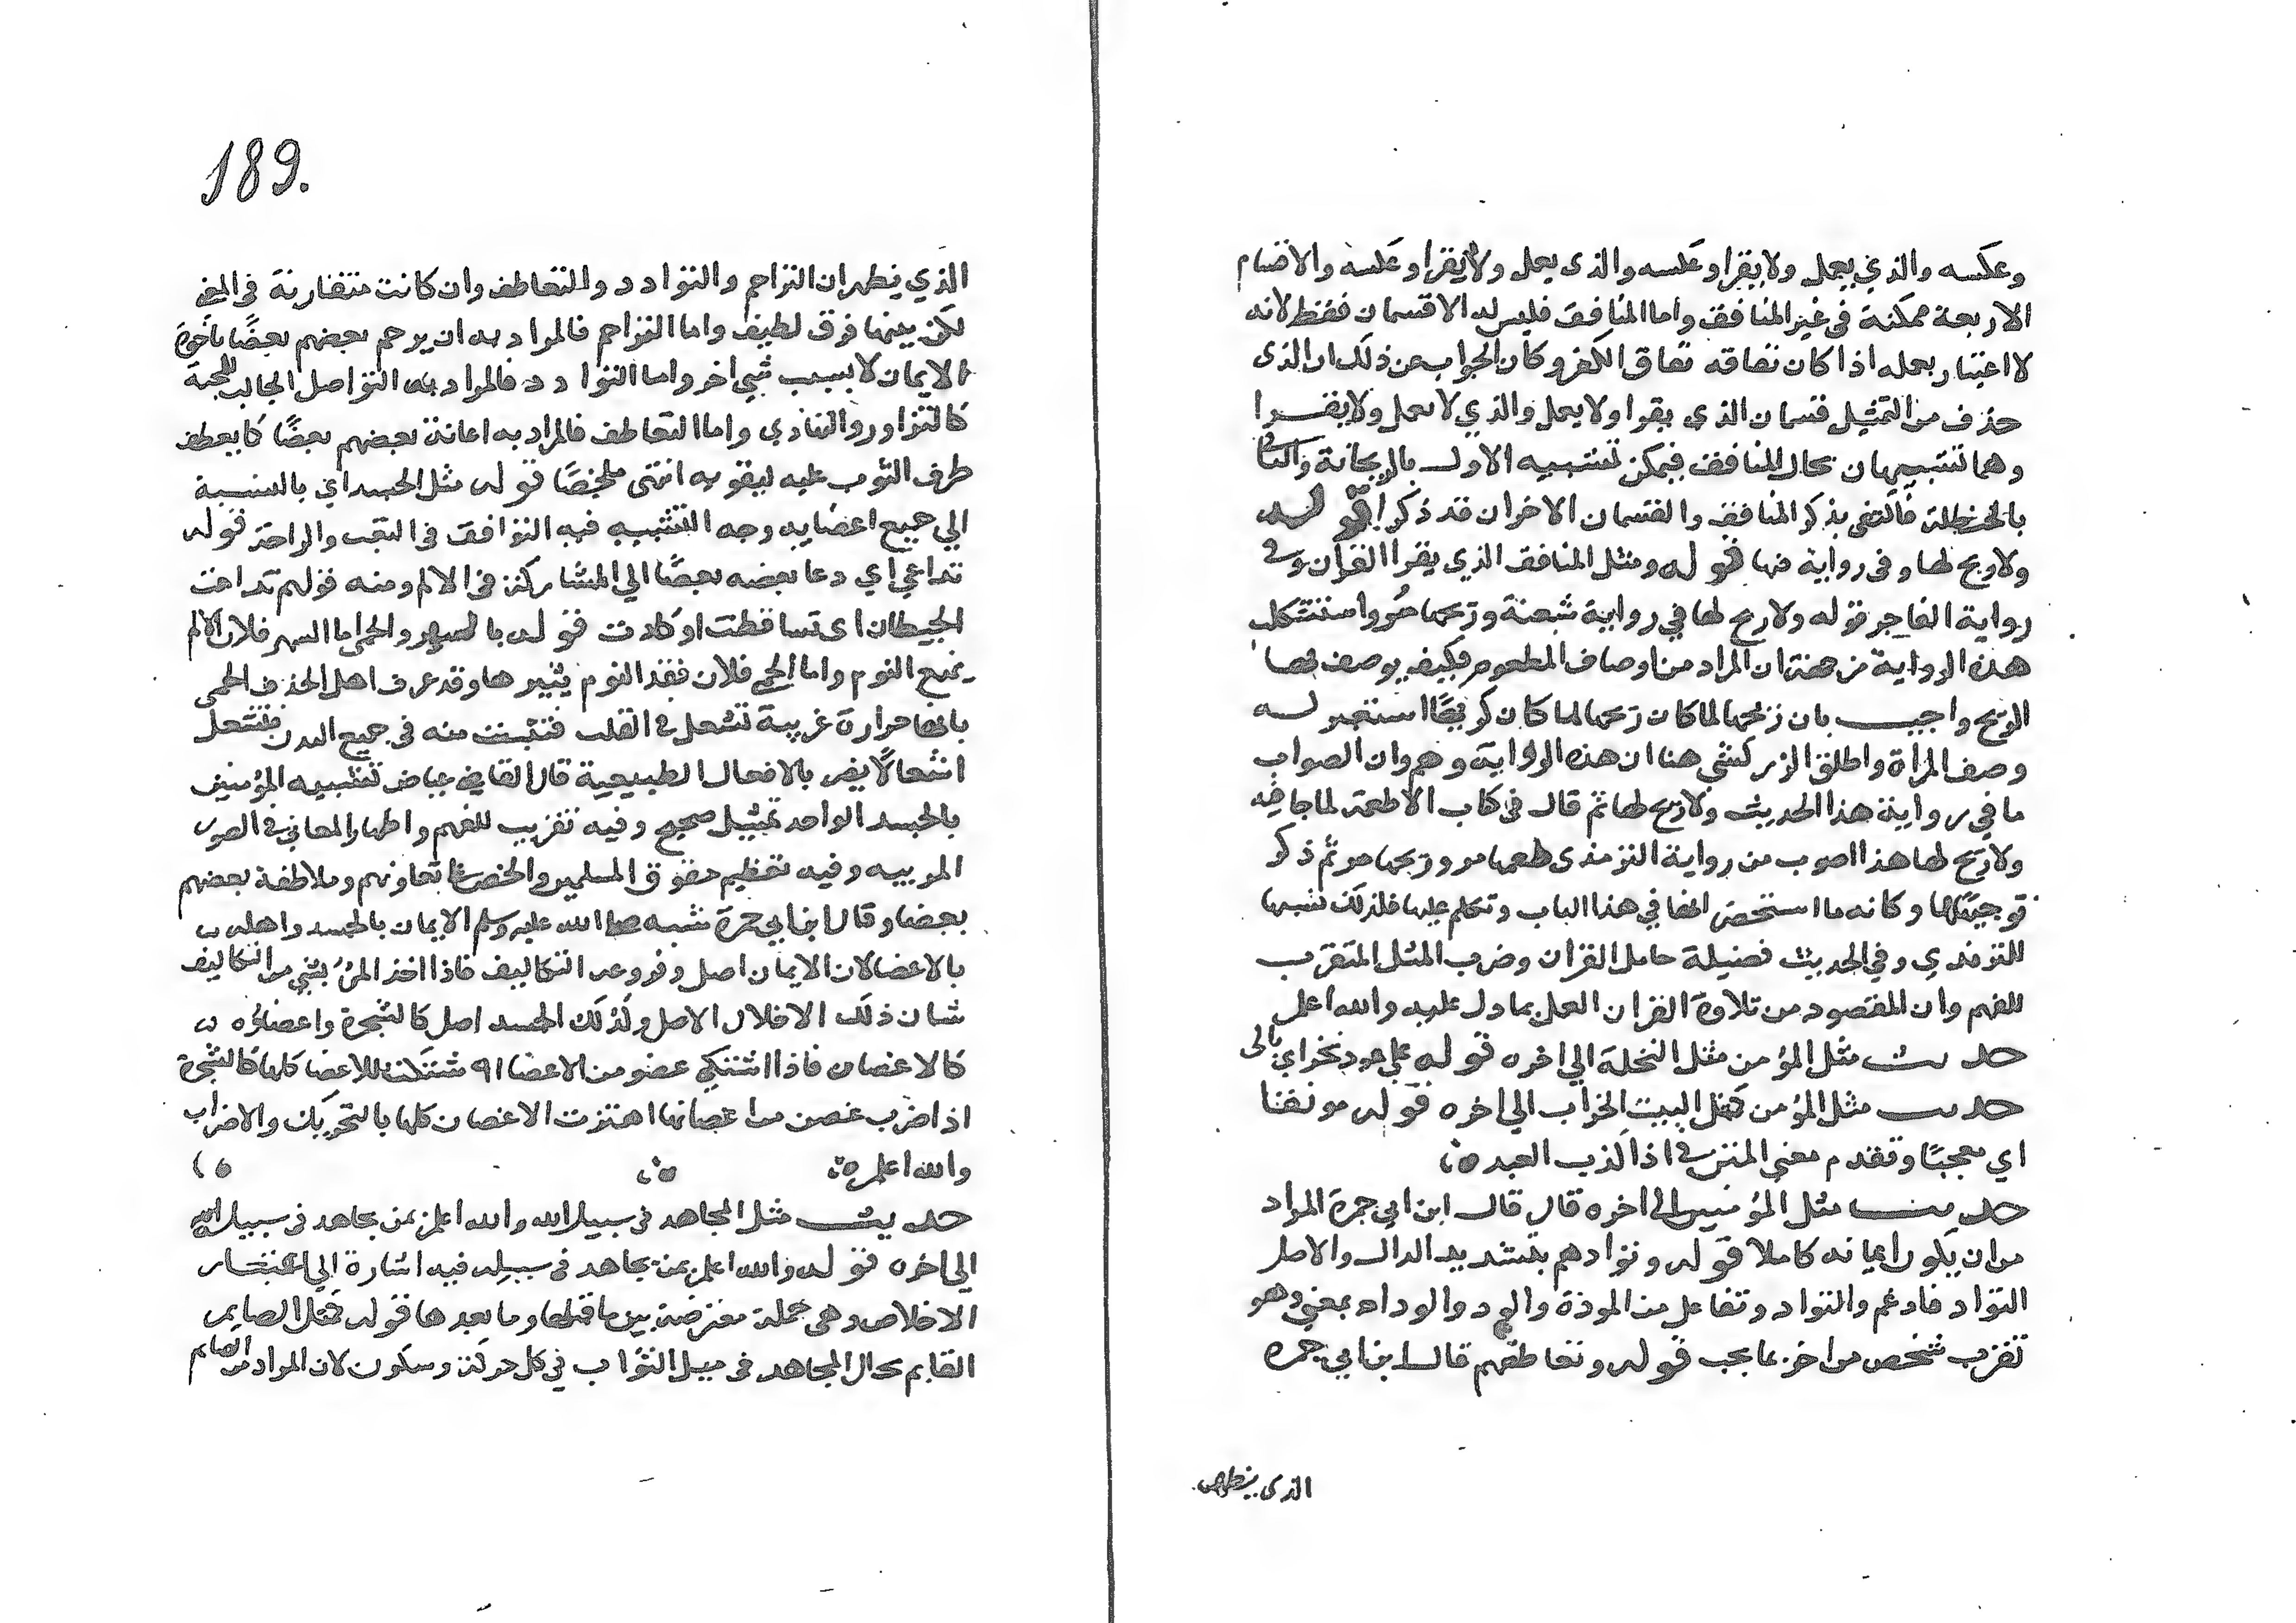 وعكسه والذي يعمل ولا يقرا وعكسه والذى يعمل ولا يقرا وعكسه والاقسام
الاربعة ممكنة فى غير المنافق واما المنافق فليس له الا قسمان فقط لانه
لا اعتبار بعمله اذا كان نفاقه نفاق الكفر وكان الجواب عن ذلك ان الذى
حذف من التمثيل قسمان الذى يقرا ولا يعمل والذي لا يعمل ولا يقرا
وهما تشبيهان بحال المنافق فيمكن تشبيه الاول بالريحانة والثانى
بالحنظلة فاكتفى بذكر المنافق والقسمان الاخران قد ذكرا قوله
ولا ريح لها وفى رواية فيها قوله ومثل المنافق الذي يقرا القران وفى
رواية الفاجر قوله ولا ريح لها في رواية شعبة وريحها مر واستشكلت
هذه الرواية من جهة ان المراد من اوصاف المطعوم فكيف يوصف بها
الريح واجيب بان ريحها لما كان ريحها لما كان كريها استعير له
وصف المراة واطلق الزركشي هنا ان هذه الرواية وهم وان الصواب
ما في رواية هذا الحديث ولا ريح لها ثم قال فى كتاب الاطعمة لما جا فيه
ولا ريح لها هذا اصوب من رواية الترمذى طعمها مر وريحها مر ثم ذكر
توجيهها وكانه ما استحضر انها في هذا الباب وتكلم عليها فلذلك نسبها
للترمذي وفي الحديث فضيلة حامل القران وضرب المثل المتقرب
للفهم وان المقصود من تلاوة القران العمل بما دل عليه والله اعلم
حديث مثل المؤمن مثل النخلة الي اخره قوله على عود نخر اي بالى
حديث مثل المؤمن كمثل البيت الخراب الي اخره قوله مونقا
اي معجبا وتقدم معنى المنتن فى اذا كذب العبد
حديث مثل المؤمنين الى اخره قال قال ابن ابي جمرة المراد
من ان يكون ايمانه كاملا قوله وتوادهم بتشديد الدال والاصل
التوادد فادغم والتوادد تفاعل من المودة والود والوداد بمعنى وهو
تقرب شخص من اخر بما يحب قوله وتعاطفهم قال ابن ابي جمره
الذى يظهر
189.
الذي يظهر ان التراحم والتوادد والتعاطف وان كانت متقاربة فى المعنى
لكن بينها فرق لطيف واما التراحم فالمراد به ان يرحم بعضهم بعضا باخوة
الايمان لا بسبب شي اخر واما التوادد فالمراد به التواصل الجالب للمحبة
كالتزاور والتهادي واما التعاطف فالمراد به اعانة بعضهم بعضا كما يعطف
طرف الثوب عليه ليقويه انتهى ملخصا قوله مثل الجسد اي بالنسبة
الي جميع اعضايه وجه التشبيه فيه التوافق فى التعب والراحة قوله
تداعي اي دعا بعضه بعضا الي المشاركة فى الالم ومنه قولهم تداعت
الحيطان اى تساقطت او كادت قوله بالسهر والحمى اما السهر فلان الالم
يمنع النوم واما الحمى فلان فقد النوم يثيرها وقد عرف اهل الحذق الحمى
بانها حرارة غريبة تشعل فى القلب فتنبث منه فى جميع البدن فتشعل
اشعالا يضر بالافعال الطبيعية قال القاضى عياض تشبيه المؤمنين
بالجسد الواحد تمثيل صحيح وفيه تقريب للفهم واظهار المعانى فى الصور
المرييه وفيه تعظيم حقوق المسلمين والحض على تعاونهم وملاطفة بعضهم
بعضا وقال ابن ابي جمرة شبه صلى الله عليه وسلم الايمان بالجسد واهله
بالاعضا لان الايمان اصل وفروعه التكاليف فاذا اخل المرء بشي من التكاليف
شان ذلك الاخلال الاصل وكذلك الجسد اصل كالشجرة واعضاؤه
كالاغصان فاذا اشتكى عضو من الاعضا اشتكت الاعضا كلها كالشجرة
اذا ضرب غصن من اغصانها اهتزت الاغصان كلها بالتحريك والاضراب
والله اعلم
حديث مثل المجاهد فى سبيل الله والله اعلم بمن يجاهد فى سبيل الله
الى اخره قوله والله اعلم بمن يجاهد فى سبيله فيه اشارة الي اعتبار
الاخلاص وهى جملة معترضة بين ما قبلها وما بعدها قوله كمثل الصايم
القايم بحال المجاهد فى نيل الثواب في كل حركة وسكون لان المراد من الصايم